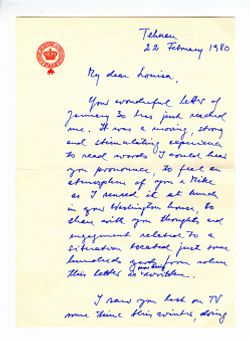 Tehran
22 February 1980
My dear Louisa,
Your wonderful letter of
January 30 has just reached
me. It was a moving, strong
and stimulating experience
to read words I could hear
you pronounce, to feel an
atmosphere of you & Mike
as I sensed it at lunch
in your Washington house, to
share with you thoughts and
engagement related to a
situation located just some
hundreds yards from where
this letter is being written.
I saw you last on TV
some time this winter, doing